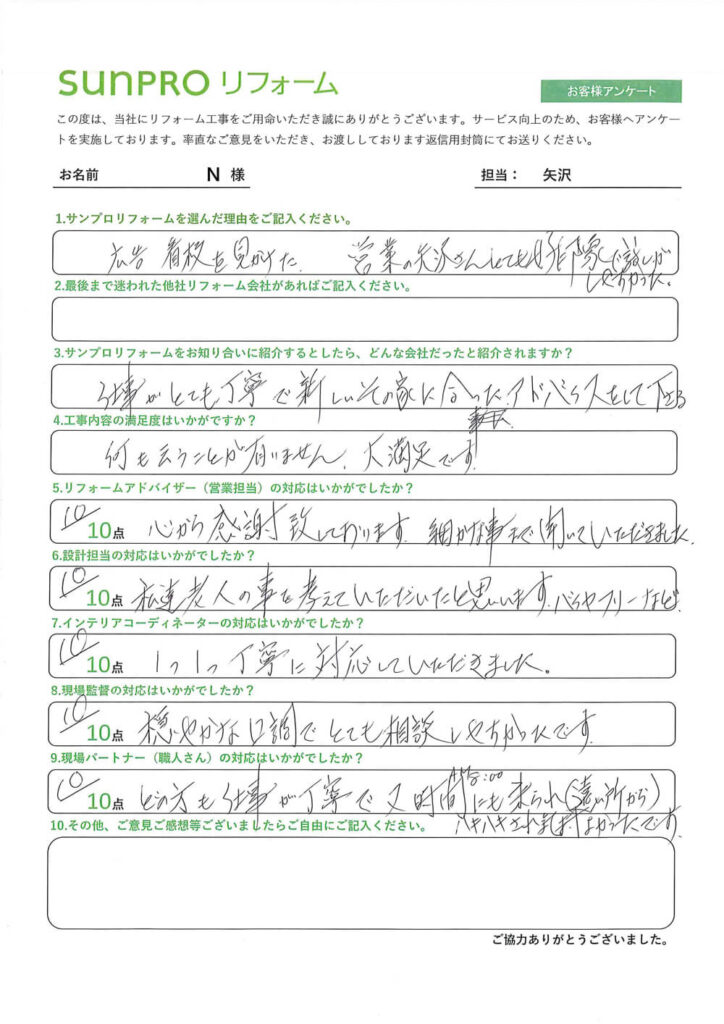 SUNPRO リフォーム
お客様アンケート
この度は、当社にリフォーム工事をご用命いただき誠にありがとうございます。サービス向上のため、お客様へアンケー
トを実施しております。率直なご意見をいただき、お渡ししております返信用封筒にてお送りください。
お名前 N 様 担当： 矢沢
1.サンプロリフォームを選んだ理由をご記入ください。
広告 看板を見かけた。 営業の矢沢さんとても好印象で話しが
しやすかった。
2.最後まで迷われた他社リフォーム会社があればご記入ください。
3.サンプロリフォームをお知り合いに紹介するとしたら、どんな会社だったと紹介されますか？
仕事がとても丁寧で新しいその家に合ったアドバイスをして下さる
4.工事内容の満足度はいかがですか？
何も云うことが有りません。大満足です
5.リフォームアドバイザー（営業担当）の対応はいかがでしたか？
10/10点 心から感謝致しております。細かな事まで聞いていただきました。
6.設計担当の対応はいかがでしたか？
10/10点 私達老人の事を考えていただいたと思います。バリヤフリーなど。
7.インテリアコーディネーターの対応はいかがでしたか？
10/10点 1つ1つ丁寧に対応していただきました。
8.現場監督の対応はいかがでしたか？
10/10点 穏やかな口調でとても相談しやすかったです。
9.現場パートナー（職人さん）の対応はいかがでしたか？
10/10点 どの方も仕事が丁寧で又時間にも来られ(遠い所から)
ハキハキされ気持よかったです。
10.その他、ご意見ご感想等ございましたらご自由にご記入ください。
ご協力ありがとうございました。